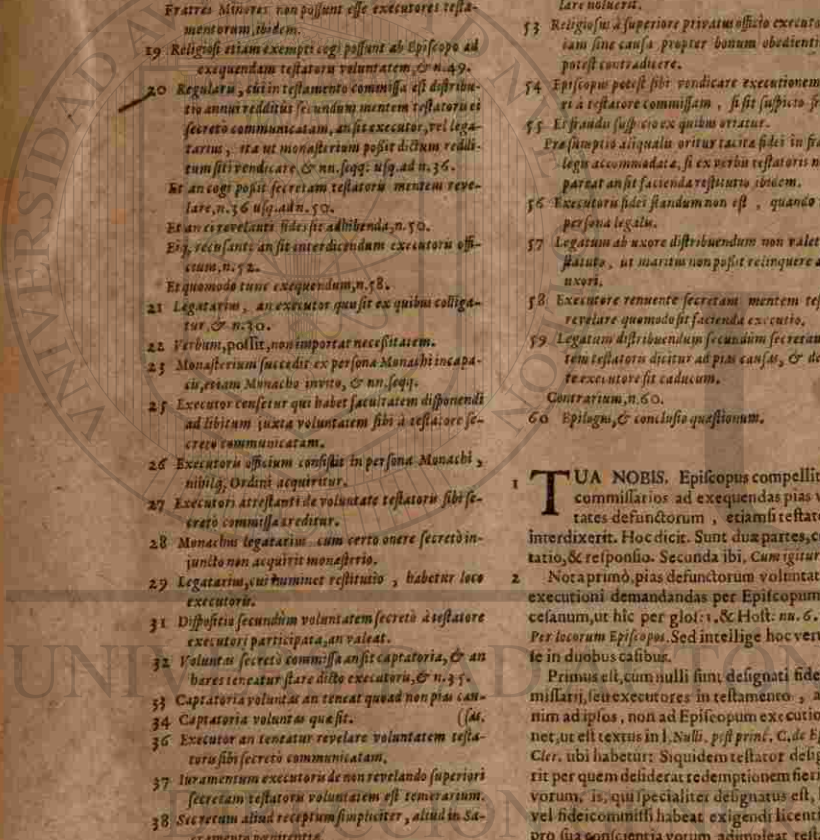 Fratres Minores non possunt esse executores testa-
mentorum, ibidem.
19 Religiosi etiam exempti cogi possunt ab Episcopo ad
exequendam testatoris voluntatem, & n.49.
20 Regularis, cui in testamento commissa est distribu-
tio annui redditus secundum mentem testatoris ei
secreto communicatam, an sit executor, vel lega-
tarius, ita ut monasterium possit dictum reddi-
tum sibi vendicare, & nn. seqq. usq. ad n.36.
Et an cogi possit secretam testatoris mentem reve-
lare, n.36 usq. ad n.50.
Et an ei revelanti fides sit adhibenda, n.50.
Eiq, recusante an sit interdicendum executoris offi-
cium, n.52.
Et quomodo tunc exequendum, n.58.
21 Legatarius, an executor quis sit ex quibus colliga-
tur, & n.30.
22 Verbum, possit, non importat necessitatem.
23 Monasterium succedit ex persona Monachi incapa-
cis, etiam Monacho invito, & nn. seqq.
25 Executor censetur qui habet facultatem disponendi
ad libitum juxta voluntatem sibi à testatore se-
creto communicatam.
26 Executoris officium consistit in persona Monachi,
nihilq, Ordini acquiritur.
27 Executori attestanti de voluntate testatoris sibi se-
creto commissa creditur.
28 Monachus legatarius cum certo onere secretò in-
juncto non acquirit monasterio.
29 Legatarius, cui imminet restitutio, habetur loco
executoris.
31 Dispositio secundùm voluntatem secretò à testatore
executori participata, an valeat.
32 Voluntas secretò commissa an sit captatoria, & an
hares teneatur stare dicto executoris, & n.35.
33 Captatoria voluntas an teneat quoad non pias cau-
34 Captatoria voluntas quæ sit. (sas.
36 Executor an teneatur revelare voluntatem testa-
toris sibi secretò communicatam.
37 Iuramentum executoris de non revelando superiori
secretam testatoris voluntatem est temerarium.
38 Secretum aliud receptum simpliciter, aliud in Sa-
cramento pœnitentiæ
lare noluerit.
53 Religiosus à superiore privatus officio executo
iam sine causa propter bonum obedienti
potest contradicere.
54 Episcopus potest sibi vendicare executionem
ri à testatore commissam, si sit suspicio fr
55 Et fraudis suspicio ex quibus oriatur.
Præsumptio aliqualis oritur tacita fidei in fra
legis accommodata, si ex verbis testatoris n
pareat an sit facienda restitutio, ibidem.
56 Executoris fidei standum non est, quando
persona legalis.
57 Legatum ab uxore distribuendum non valet
statuto, ut maritus non possit relinquere a
uxori.
58 Executore renuente secretam mentem tes
revelare quomodo sit facienda executio.
59 Legatum distribuendum secundum secretam
tem testatoris dicitur ad pias causas, & de
te executore fit caducum.
Contrarium, n.60.
60 Epilogus, & conclusio quæstionum.
1 TUA NOBIS. Episcopus compellit
commissarios ad exequendas pias v
tates defunctorum, etiamsi testato
interdixerit. Hoc dicit. Sunt duæ partes, c
tatio, & responsio. Secunda ibi, Cum igitur
2 Nota primò, pias defunctorum voluntat
executioni demandandas per Episcopum
cesanum, ut hîc per glos. 1. & Host. nu. 6.
Per locorum Episcopos. Sed intellige hoc veru
se in duobus casibus.
Primus est, cum nulli sunt designati fide
missarij, seu executores in testamento, a
nim ad ipsos, non ad Episcopum executio
net, ut est textus in l. Nulli, post princ. C. de Ep
Cler. ubi habetur: Siquidem testator desig
rit per quem desiderat redemptionem fieri
vorum, is, qui specialiter designatus est, l
vel fideicommissi habeat exigendi licenti
pro sua conscientia votum adimpleat test